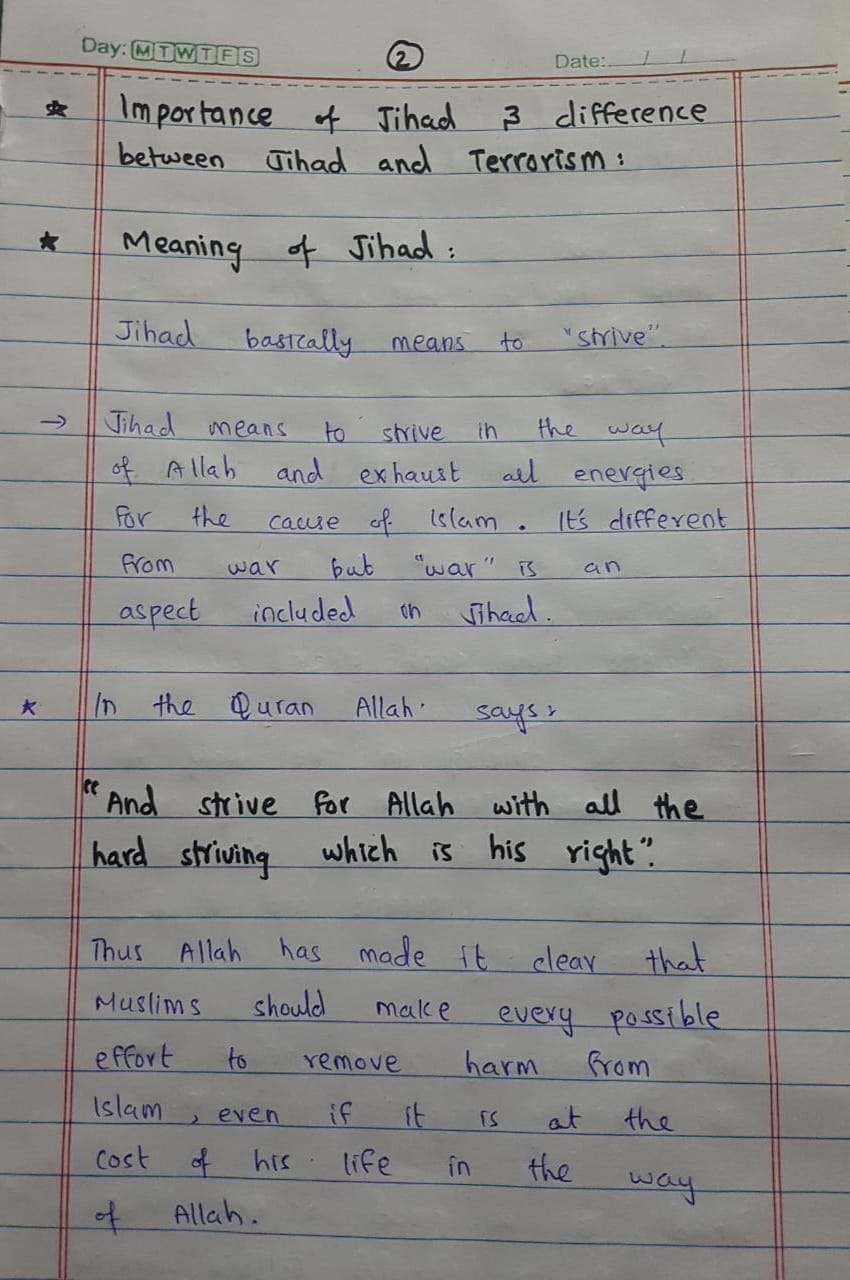 Day: M T W T F S
2
Date: / /
☆ Importance of Jihad & difference
between Jihad and Terrorism :
★ Meaning of Jihad :
Jihad basically means to "strive".
→ Jihad means to strive in the way
of Allah and exhaust all energies
for the cause of Islam. It's different
from war but "war" is an
aspect included in Jihad.
★ In the Quran Allah says:
"And strive for Allah with all the
hard striving which is his right".
Thus Allah has made it clear that
Muslims should make every possible
effort to remove harm from
Islam, even if it is at the
cost of his life in the way
of Allah.